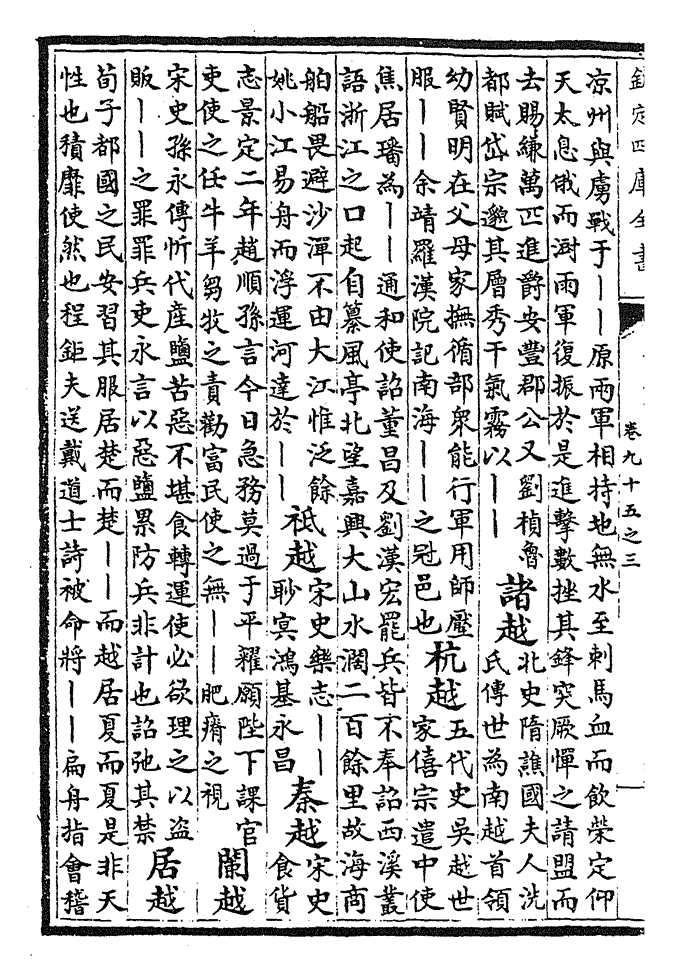 欽定四庫全書 卷九十五之三
涼州與虜戰于——原兩軍相持地無水至刺馬血而飲榮定仰
天太息俄而澍雨軍復振於是進擊數挫其鋒突厥憚之請盟而
去賜縑萬匹進爵安豐郡公又劉楨魯
都賦岱宗邈其層秀干氣霧以——
諸越
北史隋譙國夫人洗
氏傳世為南越首領
幼賢明在父母家撫循部衆能行軍用師壓
服——余靖羅漢院記南海——之冠邑也
杭越
五代史吳越世
家僖宗遣中使
焦居璠為——通和使詔董昌及劉漢宏罷兵皆不奉詔西溪叢
語浙江之口起自纂風亭北望嘉興大山水濶二百餘里故海商
舶船畏避沙潬不由大江惟泛餘
姚小江易舟而浮運河達於——
祗越
宋史樂志——
鴻基永昌
秦越
宋史
食貨
志景定二年趙順孫言今日急務莫過于平糴願陛下課官
吏使之任牛羊芻牧之責勸富民使之無——肥瘠之視
闌越
宋史孫永傳忻代產鹽苦惡不堪食轉運使必欲理之以盜
販——之罪罪兵吏永言以惡鹽累防兵非計也詔弛其禁
居越
荀子都國之民安習其服居楚而楚——而越居夏而夏是非天
性也積靡使然也程鉅夫送戴道士詩被命將——扁舟指會稽